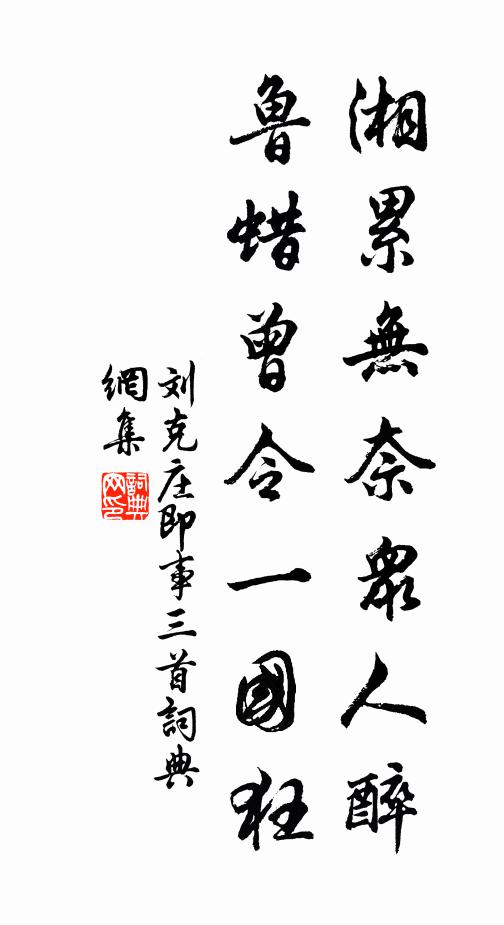 湘累無奈衆人醉
魯蜡曾令一國狂
刘克庄即事三首詞典
網集
詞典
网印